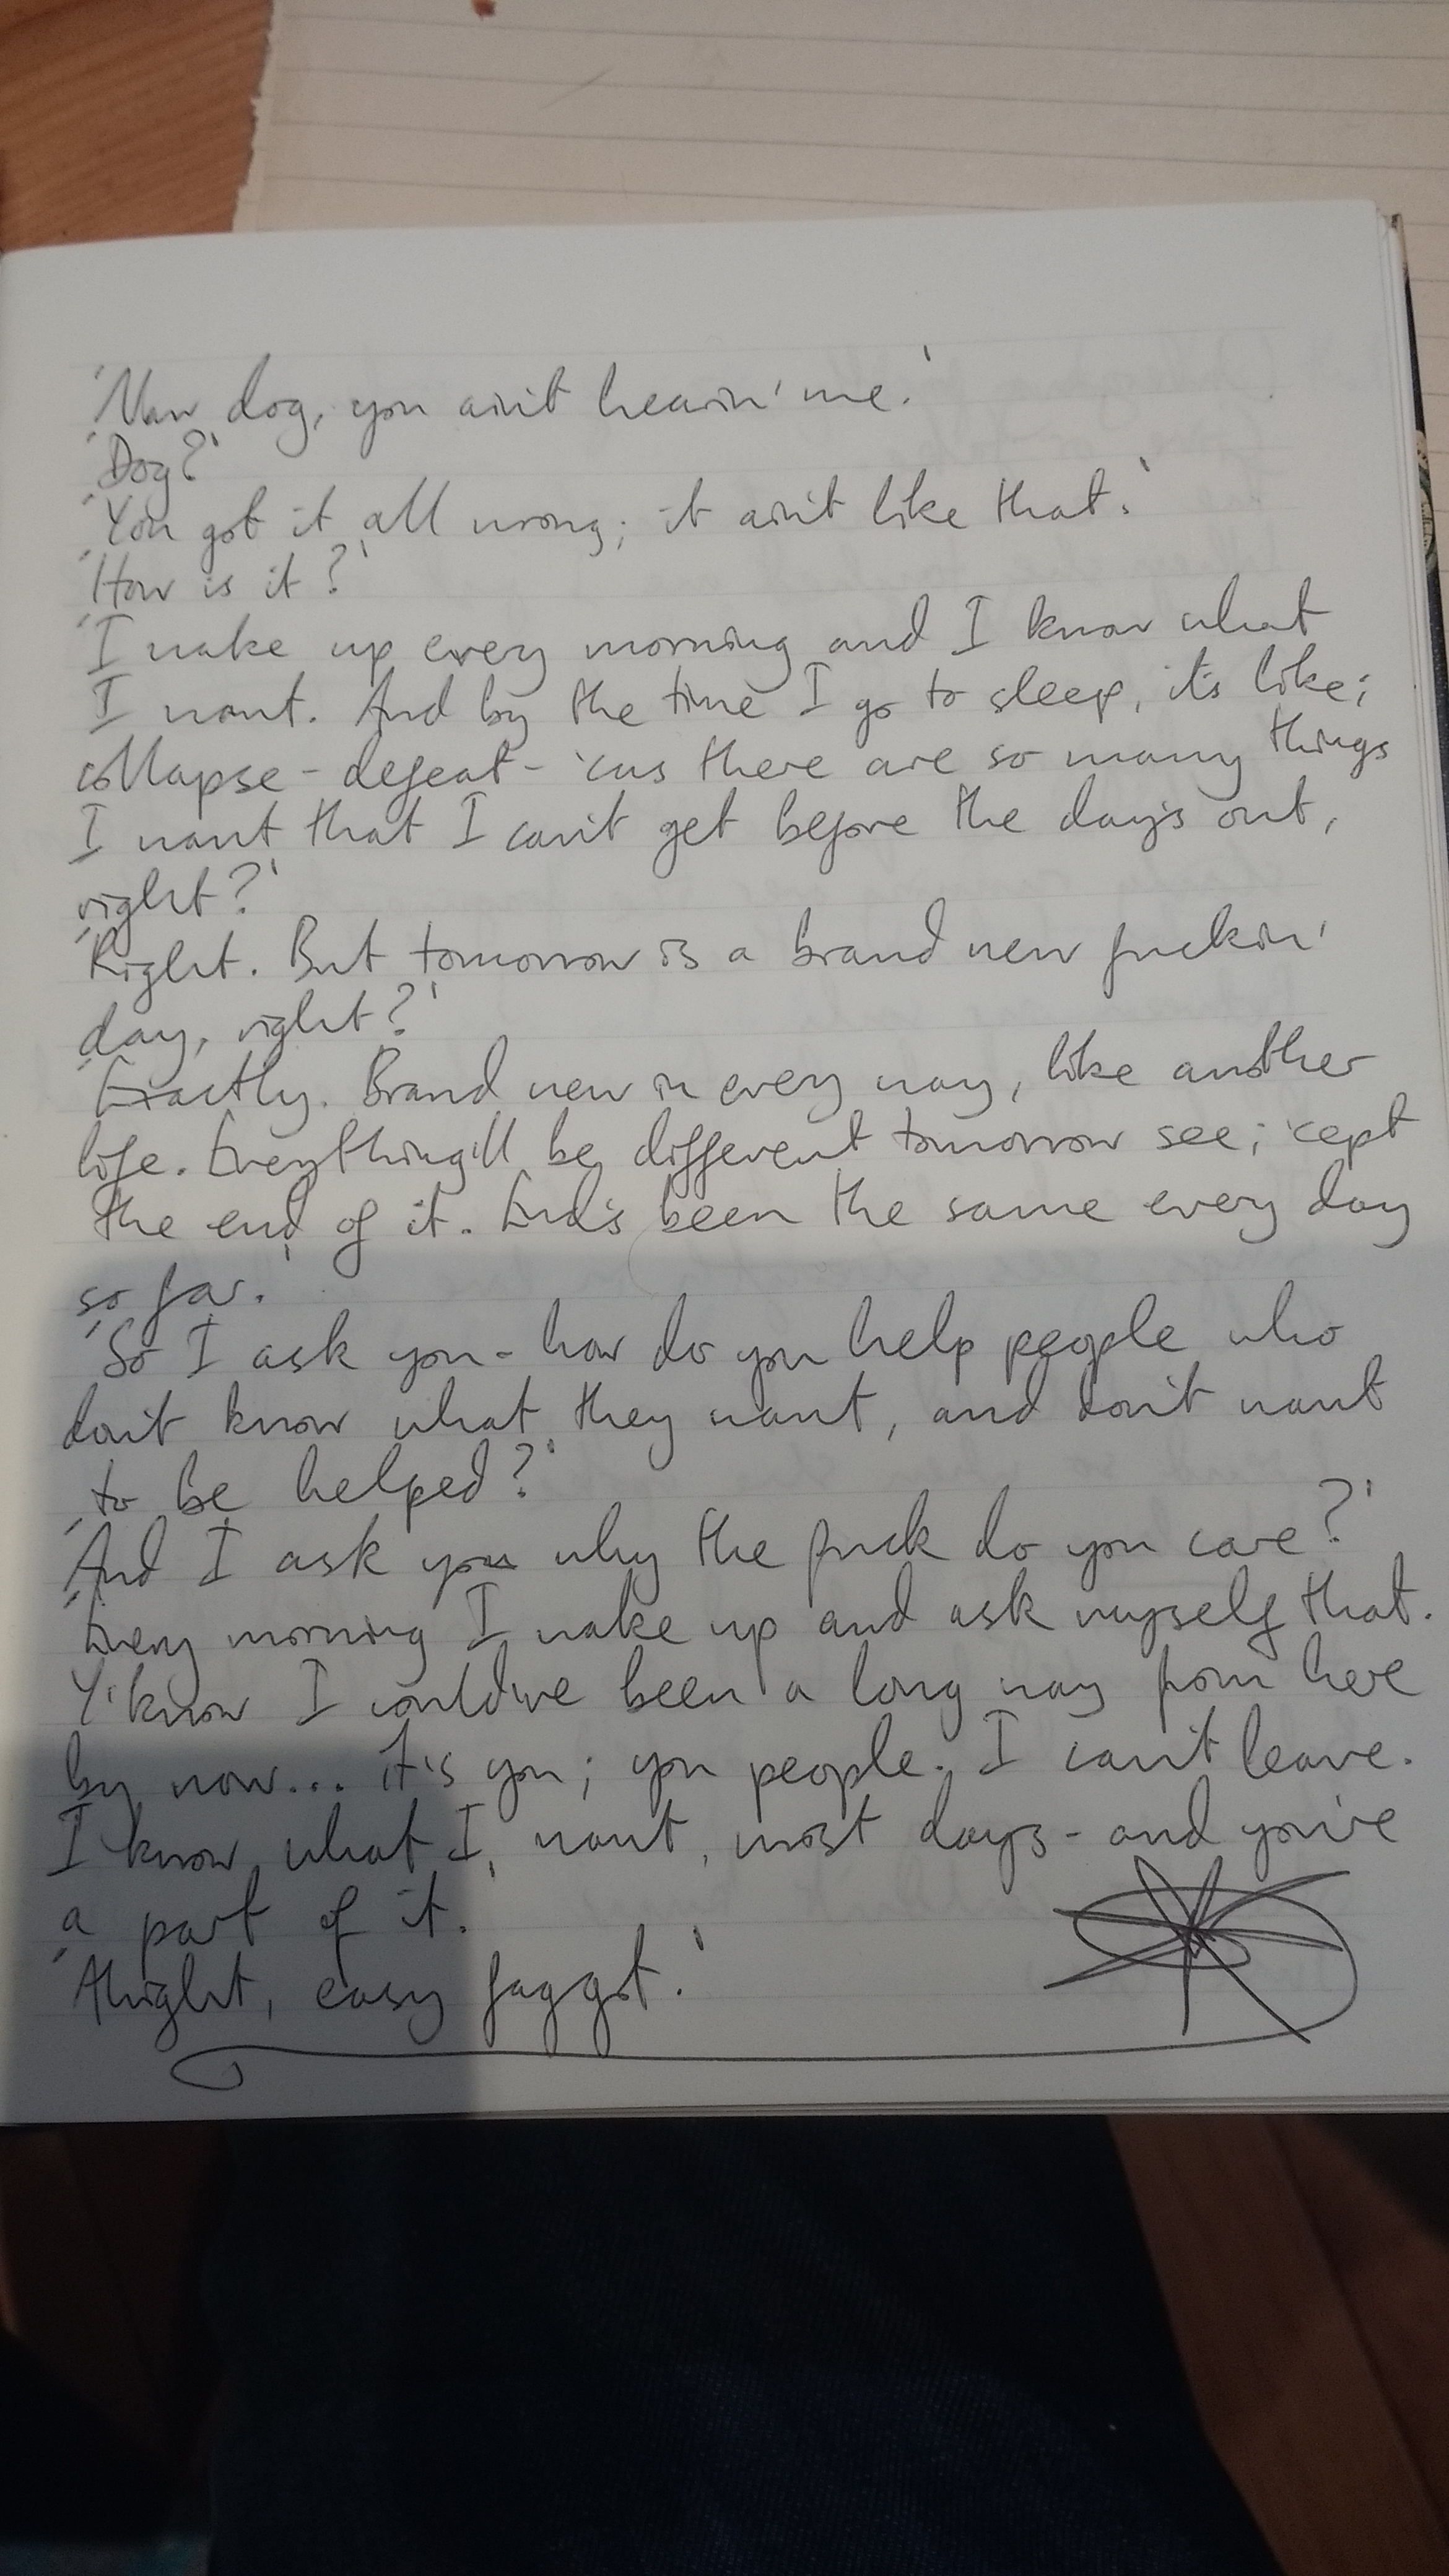 'Naw dog, you ain't hearin' me.'
'Dog?'
'You got it all wrong; it ain't like that.'
'How is it?'
'I wake up every morning and I know what
I want. And by the time I go to sleep, it's like;
collapse - defeat - 'cus there are so many things
I want that I can't get before the day's out,
right?'
'Right. But tomorrow is a brand new fuckin'
day, right?'
'Exactly. Brand new in every way, like another
life. Everything'll be different tomorrow see; 'cept
the end of it. End's been the same every day
so far.'
'So I ask you - how do you help people who
don't know what they want, and don't want
to be helped?'
'And I ask you why the fuck do you care?'
'Every morning I wake up and ask myself that.
Y'know I could've been a long way from here
by now... it's you; you people. I can't leave.
I know what I want, most days - and you're
a part of it.'
'Alright, easy faggot.'